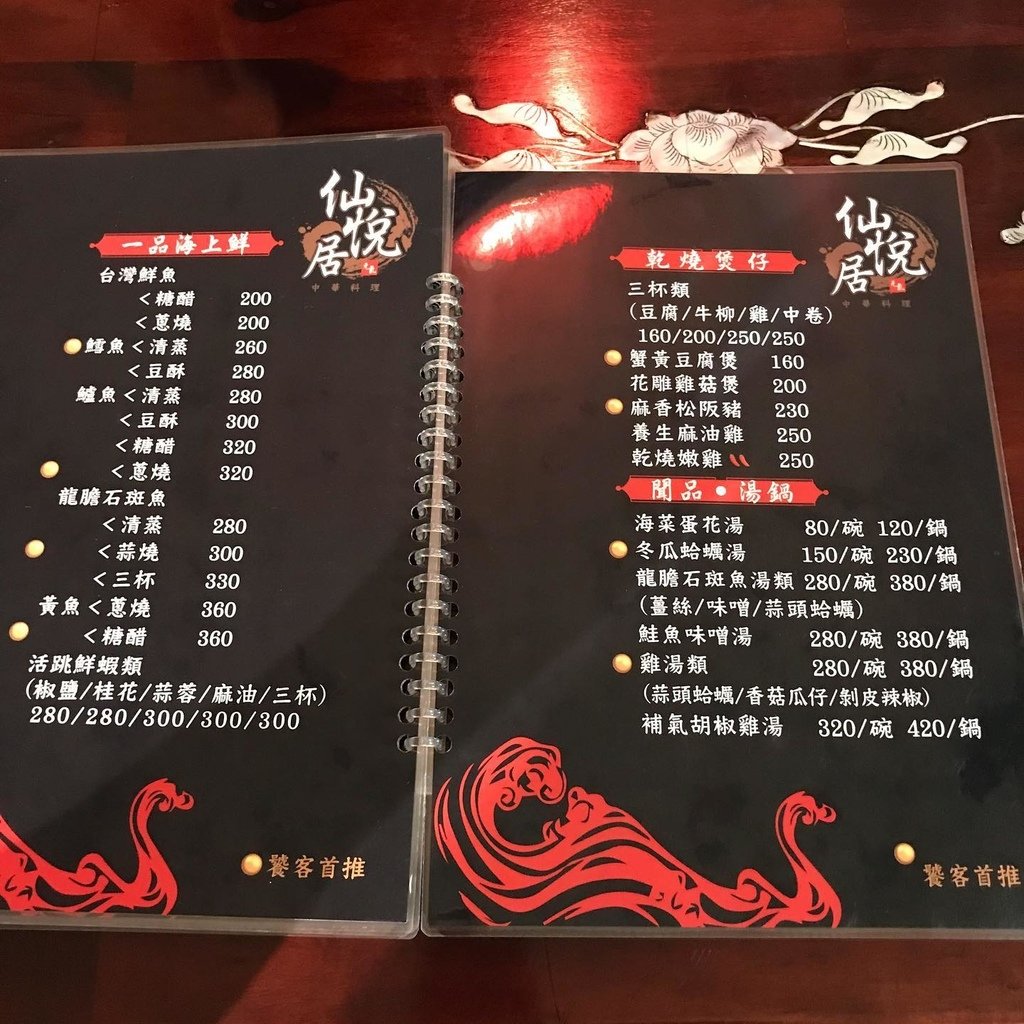 仙悅居
中華料理
一品海上鮮
台灣鮮魚
<糖醋 200
<蔥燒 200
鱈魚<清蒸 260
<豆酥 280
鱸魚<清蒸 280
<豆酥 300
<糖醋 320
<蔥燒 320
龍膽石斑魚
<清蒸 280
<蒜燒 300
<三杯 330
黃魚<蔥燒 360
<糖醋 360
活跳鮮蝦類
(椒鹽/桂花/蒜蓉/麻油/三杯)
280/280/300/300/300
饕客首推
仙悅居
中華料理
乾燒煲仔
三杯類
(豆腐/牛柳/雞/中卷)
160/200/250/250
蟹黃豆腐煲 160
花雕雞菇煲 200
麻香松阪豬 230
養生麻油雞 250
乾燒嫩雞 250
聞品•湯鍋
海菜蛋花湯 80/碗 120/鍋
冬瓜蛤蠣湯 150/碗 230/鍋
龍膽石斑魚湯類 280/碗 380/鍋
(薑絲/味噌/蒜頭蛤蠣)
鮭魚味噌湯 280/碗 380/鍋
雞湯類 280/碗 380/鍋
(蒜頭蛤蠣/香菇瓜仔/剝皮辣椒)
補氣胡椒雞湯 320/碗 420/鍋
饕客首推